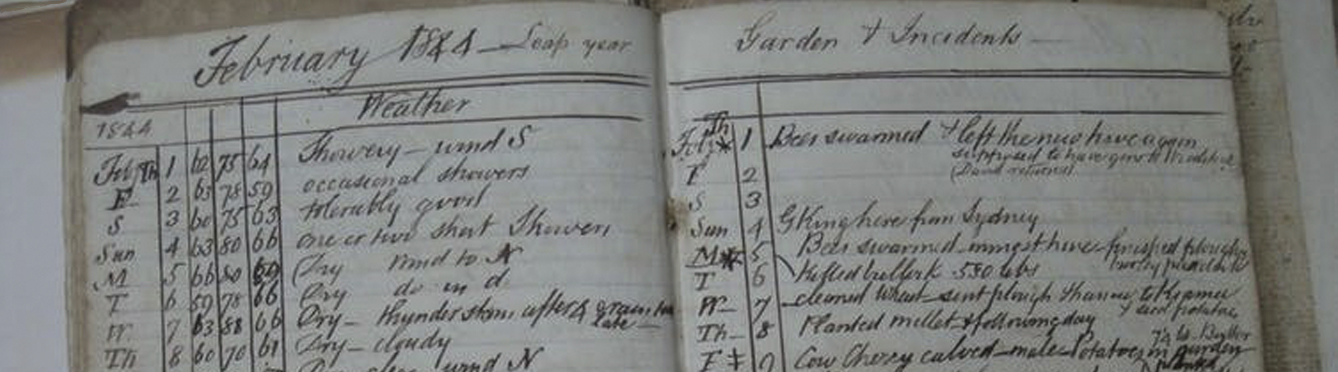 February 1844 - Leap year
Weather
1844
Feb Th 1 62 75 64 Showery - wind S
F 2 63 78 59 occasional showers
S 3 60 75 63 tolerably good
Sun 4 63 80 66 one or two short Showers
M 5 66 80 Dry wind to N
T 6 59 78 66 Dry do in d.
W 7 63 88 66 Dry - thunderstorm after 4
late -
Th 8 60 70 61 Dry - cloudy
wind N
Garden & Incidents -
Feb Th 1 Bees swarmed & left the new hive again
supposed to have gone to
F 2
S 3
Sun 4 G King here from Sydney
M 5 Bees swarmed finished
T 6 Killed bullock 580 lbs
W 7 cleaned Wheat - sent plough
Th 8 Planted millet & following day
F 9 Cow Cherry calved - male Potatoes in garden